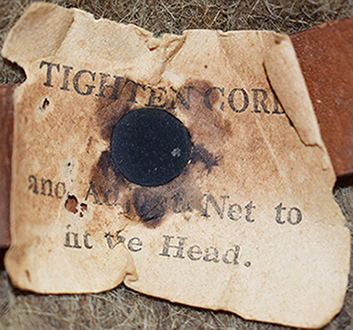 TIGHTEN CORD
and Adjust Net to
fit the Head.